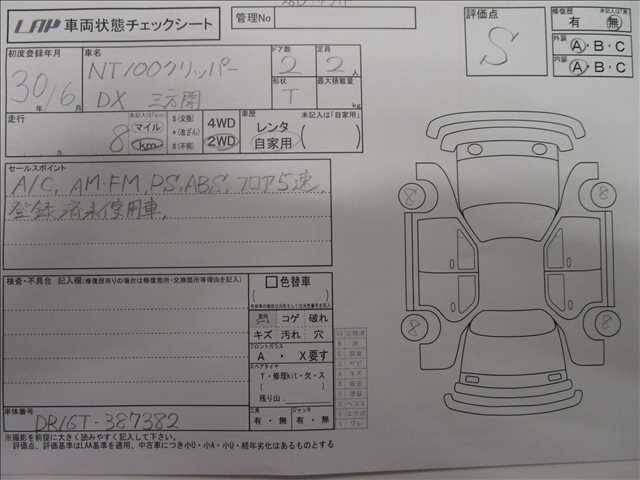 LAA 車両状態チェックシート
管理No
評価点
S
修復歴
未記入は「無」
有 ・ 無
外装 A・B・C
内装 A・B・C
初度登録年月
30年 6月
車名
NT100クリッパー
DX 三方開
ドア数
2
定員
2人
形状
T
最大積載量
kg
走行
8
マイル
km
$(交換)
*(改ざん)
#(不明)
4WD
2WD
車歴
未記入は「自家用」
レンタ
自家用
セールスポイント
A/C, AM・FM, PS, ABS, フロア5速,
登録済未使用車,
検査・不具合 記入欄(修復歴有りの場合は修復箇所・交換箇所等理由を記入)
色替車
( )
コゲ 破れ
キズ 汚れ 穴
フロントガラス
A ・ X要す
スペアタイヤ
T・修理kit・欠・ス
( )
残り山
工具
有 ・ 無
ジャッキ
有 ・ 無
8
8
8
8
車体番号
DR16T-387382
※撮影を前提に大きく読みやすく記入して下さい。
評価点、評価基準はLAA基準を適用、中古車につき小U・小A・小Q・経年劣化はあるものとする